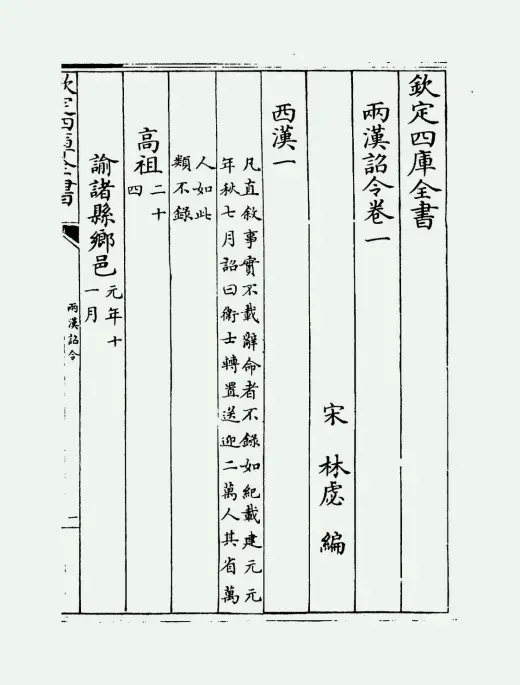 欽定四庫全書
兩漢詔令卷一
宋 林虙 編
西漢一
凡直敘事實不載辭命者不錄如紀載建元元
年秋七月詔曰衛士轉置送迎二萬人其省萬
人如此
類不錄
高祖二十
四
諭諸縣鄉邑元年十
一月
欽定四庫全書
兩漢詔令
一